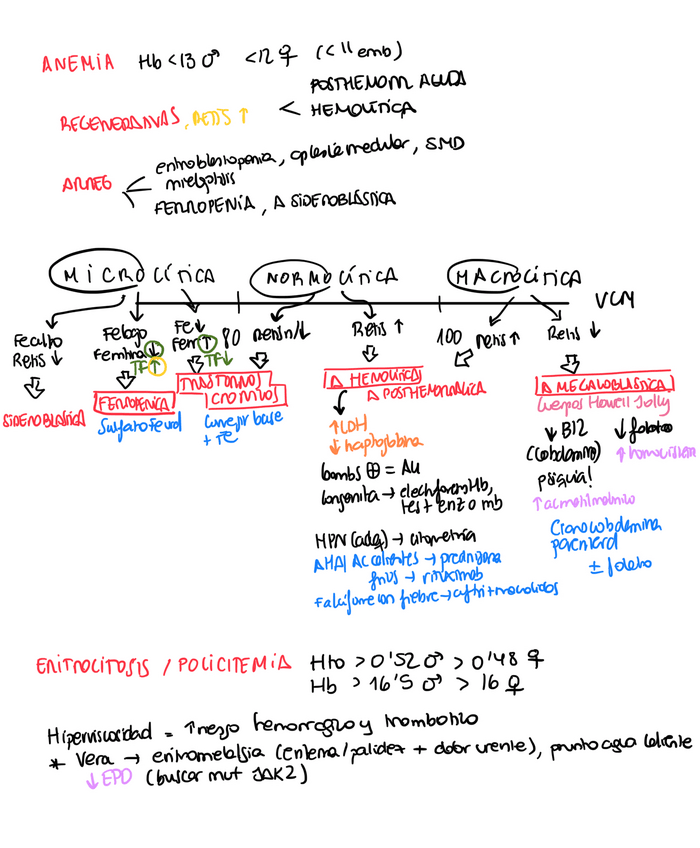 ANEMIA Hb <13 ♂ <12 ♀ (<11 emb)
REGENERATIVAS, RETIS ↑ < POSTHEMORR AGUDA
HEMOLÍTICA
ARREG < eritroblastopenia, aplasia medular, SMD
mieloptisis
FERROPENIA, A SIDEROBLÁSTICA
MICROCÍTICA NORMOCÍTICA MACROCÍTICA
VCM
80 100
Fe alto
Retis ↓
SIDEROBLASTICA
Fe bajo
Ferritina ↓
TF ↑
FERROPENICA
Sulfato ferroso
Fe ↓
Ferr ↑
TF ↓
TRASTORNOS
CRONICOS
Corregir base
+ Fe
Retis n/↓
Retis ↑
A HEMOLITICAS
A POSTHEMORRAGICA
↑ LDH
↓ haptoglobina
Coombs ⊕ = Au
Congenita → electroforesis Hb,
test enz o mb
HPN (adq) → citometría
AHAI AC calientes → prednisona
frios → rituximab
Falciforme con fiebre → ceftri + macrolidos
retis ↑
Retis ↓
A MEGALOBLASTICA
Cuerpos Howell Jolly
↓ B12
(cobalamina)
psiquia!
↑ ac metilmalonico
↓ folatos
↑ homocisteina
Cianocobalamina
parenteral
± folato
ERITROCITOSIS / POLICITEMIA Hto > 0'52 ♂ > 0'48 ♀
Hb > 16'5 ♂ > 16 ♀
Hiperviscosidad = ↑ riesgo hemorragico y trombotico
* Vera → eritromelalgia (eritema/palidez + dolor urente), prurito agua caliente
↓ EPO (buscar mut JAK2)